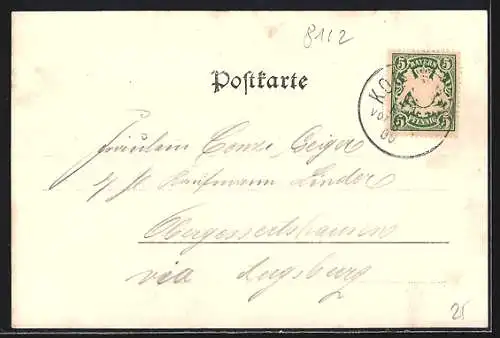 8112
Postkarte
BAYERN
5 5
5 5
PFENNIG
KO
VOR
00
Fräulein Geiger
Kaufmann Linder
Obergessertshausen
via Augsburg
25